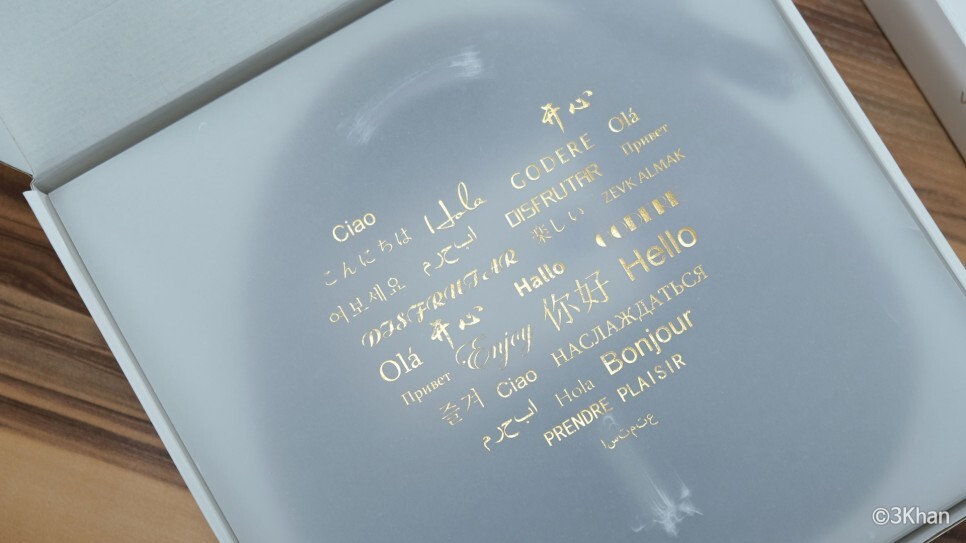 开心 Olá
GODERE Привет
Ciao Hola DISFRUTAR ZEVK ALMAK
こんにちは ابحرم 楽しい
여보세요 DISFRUTAR Hallo 你好 Hello
Olá 开心 Enjoy НАСЛАЖДАТЬСЯ
Привет 즐겨 Ciao Hola Bonjour
ابحرم PRENDRE PLAISIR
عتمتسا
©3Khan